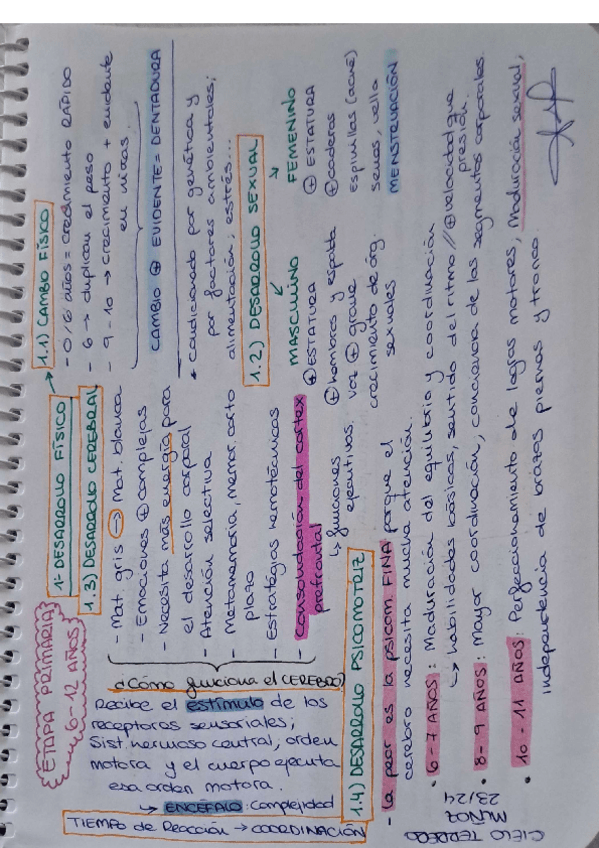 ETAPA PRIMARIA
6-12 AÑOS
1- DESARROLLO FÍSICO
1.1) CAMBIO FÍSICO
- 0/6 años = crecimiento RÁPIDO
- 6 → duplican el peso
- 9-10 → crecimiento + evidente
en niñas.
CAMBIO ⊕ EVIDENTE = DENTADURA
* condicionado por genética y
por factores ambientales;
alimentación, estrés...
1.2) DESARROLLO SEXUAL
MASCULINO
⊕ ESTATURA
⊕ hombros y espalda
voz ⊕ grave
crecimiento de órg.
sexuales
FEMENINO
⊕ ESTATURA
⊕ caderas
espinillas (acné)
senos, vello
MENSTRUACIÓN
1.3) DESARROLLO CEREBRAL
- Mat. gris → Mat. blanca
- Emociones ⊕ complejas
- Necesita más energía para
el desarrollo corporal
- Atención selectiva
- Metamemoria, memor. corto
plazo
- Estrategias nemotécnicas
- Consolidación del cortex
prefrontal
↳ funciones
ejecutivas.
¿Cómo funciona el CEREBRO?
Recibe el estímulo de los
receptores sensoriales;
Sist. nervioso central, orden
motora y el cuerpo ejecuta
esa orden motora.
↳ ENCÉFALO: complejidad
TIEMPO de Reacción → COORDINACIÓN
1.4) DESARROLLO PSICOMOTRIZ
- Lo peor es la psicom. FINA porque el
cerebro necesita mucha atención.
• 6-7 AÑOS: Maduración del equilibrio y coordinación
↳ habilidades básicas, sentido del ritmo // ⊕ velocidad que
presión.
• 8-9 AÑOS: Mayor coordinación, conciencia de los segmentos corporales.
• 10-11 AÑOS: Perfeccionamiento de logros motores, Maduración sexual,
independencia de brazos piernas y tronco.
CIELO TERRERO
MUÑOZ
23/24